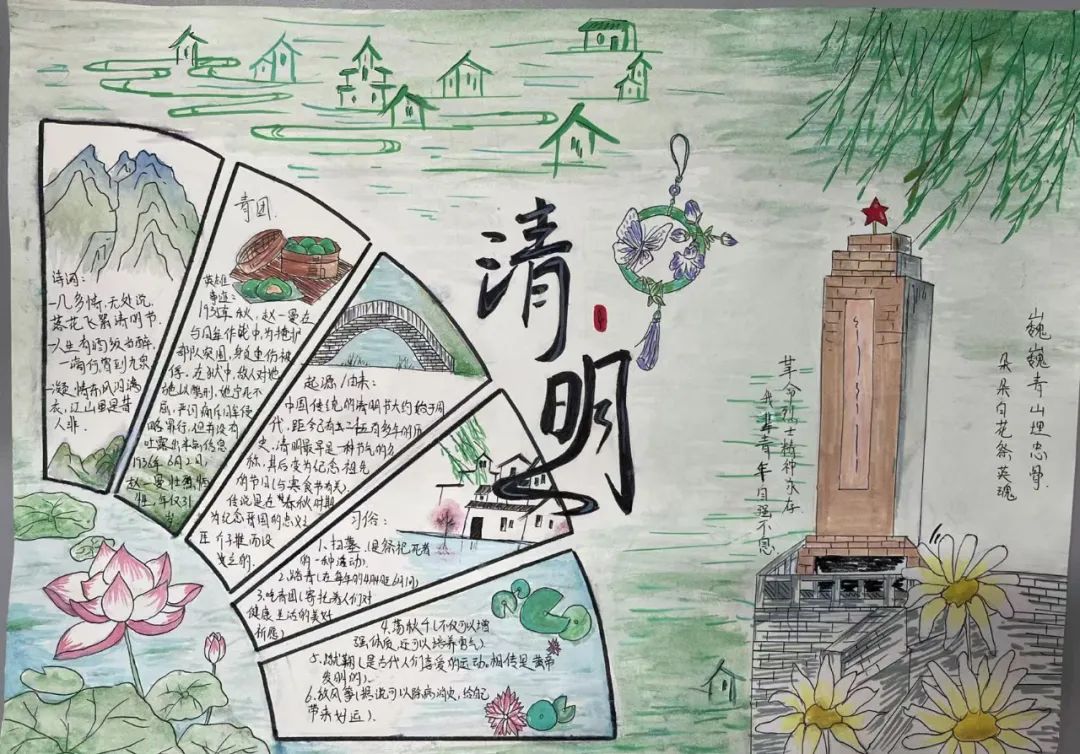 清明
诗词:
一几多情,无处说,
落花飞絮清明节.
一人生有酒须当醉,
一滴何曾到九泉
衣,江山里是昔
人非.
青团.
英雄
事迹:
1935年秋,赵一曼在
与日军作战中,为掩护
部队突围,身负重伤被
俘。在狱中,敌人对她
施以酷刑,她宁死不
屈,严词痛斥日军侵
略罪行,但有没有
吐露出半句信息
1936年6月2日,
赵一曼壮烈牺
牲,年仅31
岁
起源/由来:
中国传统的清明节大约始于周
代,距今已有二千五百多年的历
史,清明最早是一种节气的名
称,其后变为纪念祖先
的节日(与寒食节有关).
传说是在春秋时期
为纪念晋国的忠义之
臣介子推而设
立的.
习俗:
1.扫墓(是祭祀死者
的一种活动).
2.踏青(在每年的4月4日至6日间)
3.吃青团(寄托着人们对
健康生活的美好
祈愿)
4.荡秋千(不仅可以增
强体质,还可以培养勇气)
5.蹴鞠(是古代人们喜爱的运动。相传是黄帝
发明的).
6.放风筝(据说可以除病消灾,给自己
带来好运).
革命烈士精神永存
我辈青年自强不息
巍巍青山埋忠骨.
朵朵白花祭英魂